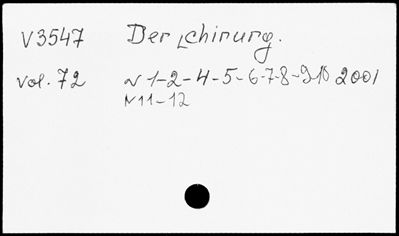 V3547 Der Chirurg.
vol. 72 N 1-2-4-5-6-7-8-9-10 2001
N 11-12